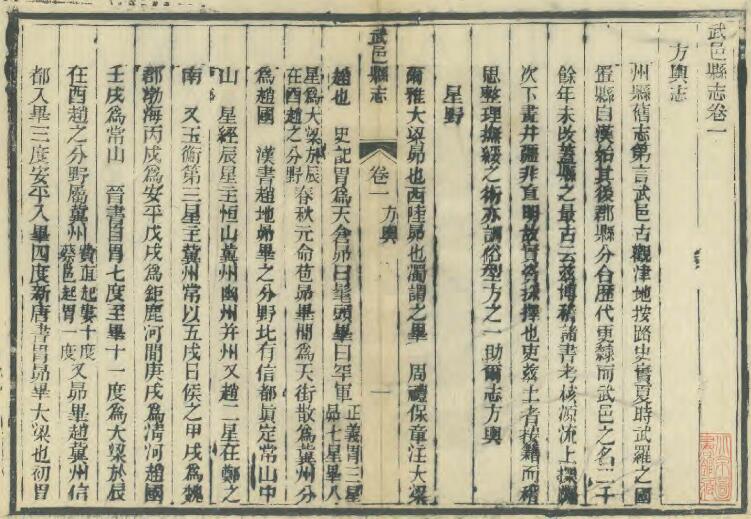 武邑縣志卷一
方輿志
州縣舊志第言武邑古觀津地按路史實夏時武羅之國
置縣自漢始其後郡縣分合歷代更隸而武邑之名二千
餘年未改蓋縣之最古云茲博稽諸書考核源流上探躔
次下畫井疆非直明故實資採擇也吏茲土者按籍而稽
思整理撫綏之術亦訓俗型方之一助爾志方輿
星野
爾雅大梁昴也西陸昴也濁謂之畢 周禮保章注大梁
武邑縣志 卷一 方輿 一
趙也 史記胃為天倉昴曰髦頭畢曰罕車正義胃三星昴七星畢八
星為大梁於辰在酉趙之分野春秋元命苞昴畢間為天街散為冀州分
為趙國 漢書趙地昴畢之分野比有信都眞定常山中
山 星經辰星主恒山冀州幽州并州又趙二星在鄭之
南 又玉衡第三星主冀州常以五戌日侯之甲戌為魏
郡渤海丙戌為安平戊戌為鉅鹿河間庚戌為清河趙國
壬戌為常山 晉書自胃七度至畢十一度為大梁於辰
在酉趙之分野屬冀州費直起婁十度蔡邕起胃一度又昴畢趙冀州信
都入畢三度安平入畢四度新唐書胃昴畢大梁也初胃